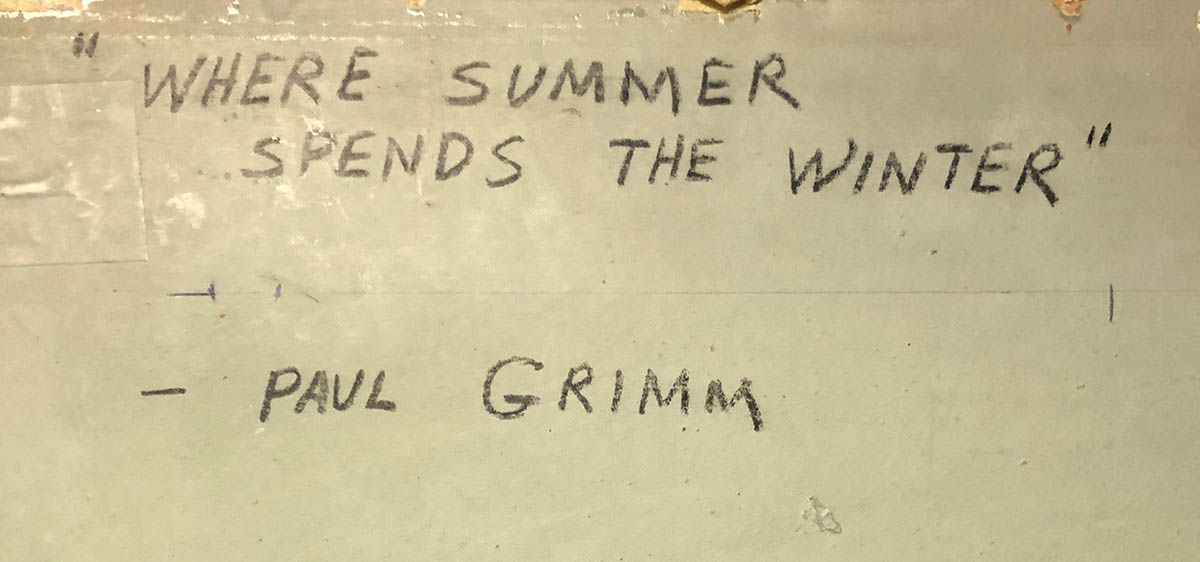 "WHERE SUMMER
SPENDS THE WINTER"
- PAUL GRIMM